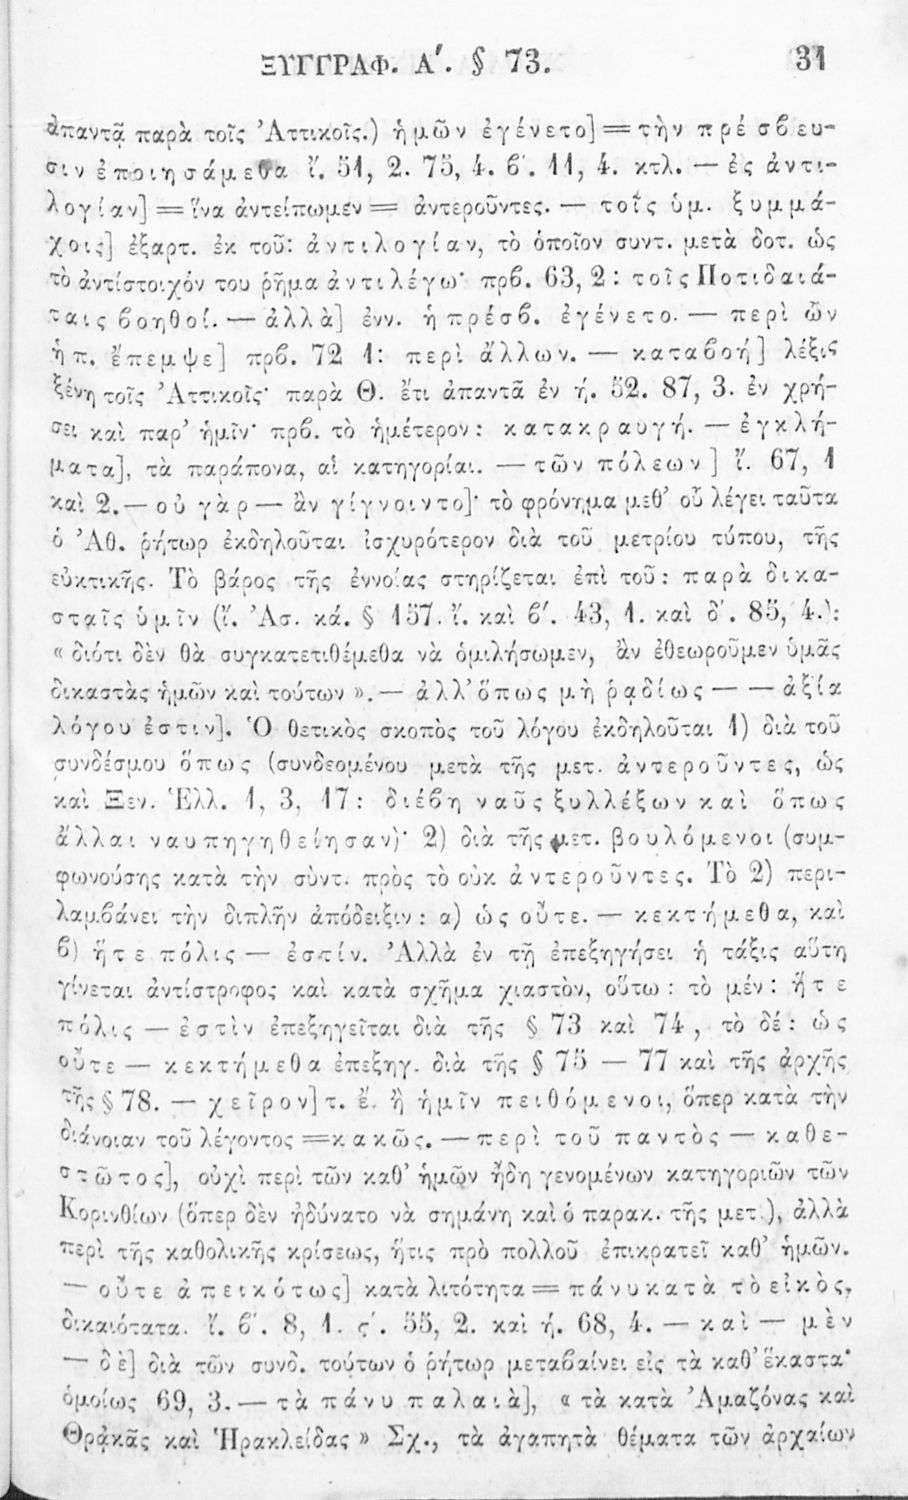 ΞΥΓΓΡΑΦ. Α΄. § 73. 31
ἀπαντᾷ παρὰ τοῖς Ἀττικοῖς.) ἡμῶν ἐγένετο] = τὴν πρέσβευ-
σιν ἐποιησάμεθα ἴ. 51, 2. 75, 4. β΄. 11, 4. κτλ. — ἐς ἀντι-
λογίαν] = ἵνα ἀντείπωμεν = ἀντεροῦντες. — τοῖς ὑμ. ξυμμά-
χοις] ἐξαρτ. ἐκ τοῦ: ἀντιλογίαν, τὸ ὁποῖον συντ. μετὰ δοτ. ὡς
τὸ ἀντίστοιχόν του ῥῆμα ἀντιλέγω· πρβ. 63, 2: τοῖς Ποτιδαιά-
ταις βοηθοί. — ἀλλὰ] ἐνν. ἡ πρέσβ. ἐγένετο. — περὶ ὧν
ἡ π. ἔπεμψε] πρβ. 72 1: περὶ ἄλλων. — καταβοή] λέξις
ξένη τοῖς Ἀττικοῖς· παρὰ Θ. ἔτι ἀπαντᾶ ἐν ή. 52. 87, 3. ἐν χρή-
σει καὶ παρ' ἡμῖν· πρβ. τὸ ἡμέτερον: κατακραυγή. — ἐγκλή-
ματα], τὰ παράπονα, αἱ κατηγορίαι. — τῶν πόλεων] ἴ. 67, 1
καὶ 2. — οὐ γὰρ — ἂν γίγνοιντο]· τὸ φρόνημα μεθ' οὗ λέγει ταῦτα
ὁ Ἀθ. ῥήτωρ ἐκδηλοῦται ἰσχυρότερον διὰ τοῦ μετρίου τύπου, τῆς
εὐκτικῆς. Τὸ βάρος τῆς ἐννοίας στηρίζεται ἐπὶ τοῦ: παρὰ δικα-
σταῖς ὑμῖν (ἴ. Ἀσ. κά. § 157. ἴ. καὶ β΄. 43, 1. καὶ δ΄. 85, 4.):
« διότι δὲν θὰ συγκατετιθέμεθα νὰ ὁμιλήσωμεν, ἂν ἐθεωροῦμεν ὑμᾶς
δικαστὰς ἡμῶν καὶ τούτων ». — ἀλλ' ὅπως μὴ ῥᾳδίως — — ἀξία
λόγου ἐστιν]. Ὁ θετικὸς σκοπὸς τοῦ λόγου ἐκδηλοῦται 1) διὰ τοῦ
συνδέσμου ὅπως (συνδεομένου μετὰ τῆς μετ. ἀντεροῦντες, ὡς
καὶ Ξεν. Ἑλλ. 1, 3, 17: διέβη ναῦς ξυλλέξων καὶ ὅπως
ἄλλαι ναυπηγηθείησαν)· 2) διὰ τῆς μετ. βουλόμενοι (συμ-
φωνούσης κατὰ τὴν σὺντ. πρὸς τὸ οὐκ ἀντεροῦντες. Τὸ 2) περι-
λαμβάνει τὴν διπλῆν ἀπόδειξιν: α) ὡς οὔτε. — κεκτήμεθα, καὶ
β) ἥτε πόλις — ἐστίν. Ἀλλὰ ἐν τῇ ἐπεξηγήσει ἡ τάξις αὕτη
γίνεται ἀντίστροφος καὶ κατὰ σχῆμα χιαστὸν, οὕτω: τὸ μέν: ἥτε
πόλις — ἐστὶν ἐπεξηγεῖται διὰ τῆς § 73 καὶ 74, τὸ δέ: ὡς
οὔτε — κεκτήμεθα ἐπεξηγ. διὰ τῆς § 75 — 77 καὶ τῆς ἀρχῆς
τῆς § 78. — χεῖρον] τ. ἔ. ἢ ἡμῖν πειθόμενοι, ὅπερ κατὰ τὴν
διάνοιαν τοῦ λέγοντος = κακῶς. — περὶ τοῦ παντὸς — καθε-
στῶτος], οὐχὶ περὶ τῶν καθ' ἡμῶν ἤδη γενομένων κατηγοριῶν τῶν
Κορινθίων (ὅπερ δὲν ἠδύνατο νὰ σημάνη καὶ ὁ παρακ. τῆς μετ.), ἀλλὰ
περὶ τῆς καθολικῆς κρίσεως, ἥτις πρὸ πολλοῦ ἐπικρατεῖ καθ' ἡμῶν.
— οὔτε ἀπεικότως] κατὰ λιτότητα = πάνυ κατὰ τὸ εἰκὸς,
δικαιότατα. ἴ. β΄. 8, 1. ς΄. 55, 2. καὶ ή. 68, 4. — καὶ — μὲν
— δὲ] διὰ τῶν συνδ. τούτων ὁ ῥήτωρ μεταβαίνει εἰς τὰ καθ' ἕκαστα·
ὁμοίως 69, 3. — τὰ πάνυ παλαιὰ], « τὰ κατὰ Ἀμαζόνας καὶ
Θρᾷκᾶς καὶ Ἡρακλείδας » Σχ., τὰ ἀγαπητὰ θέματα τῶν ἀρχαίων